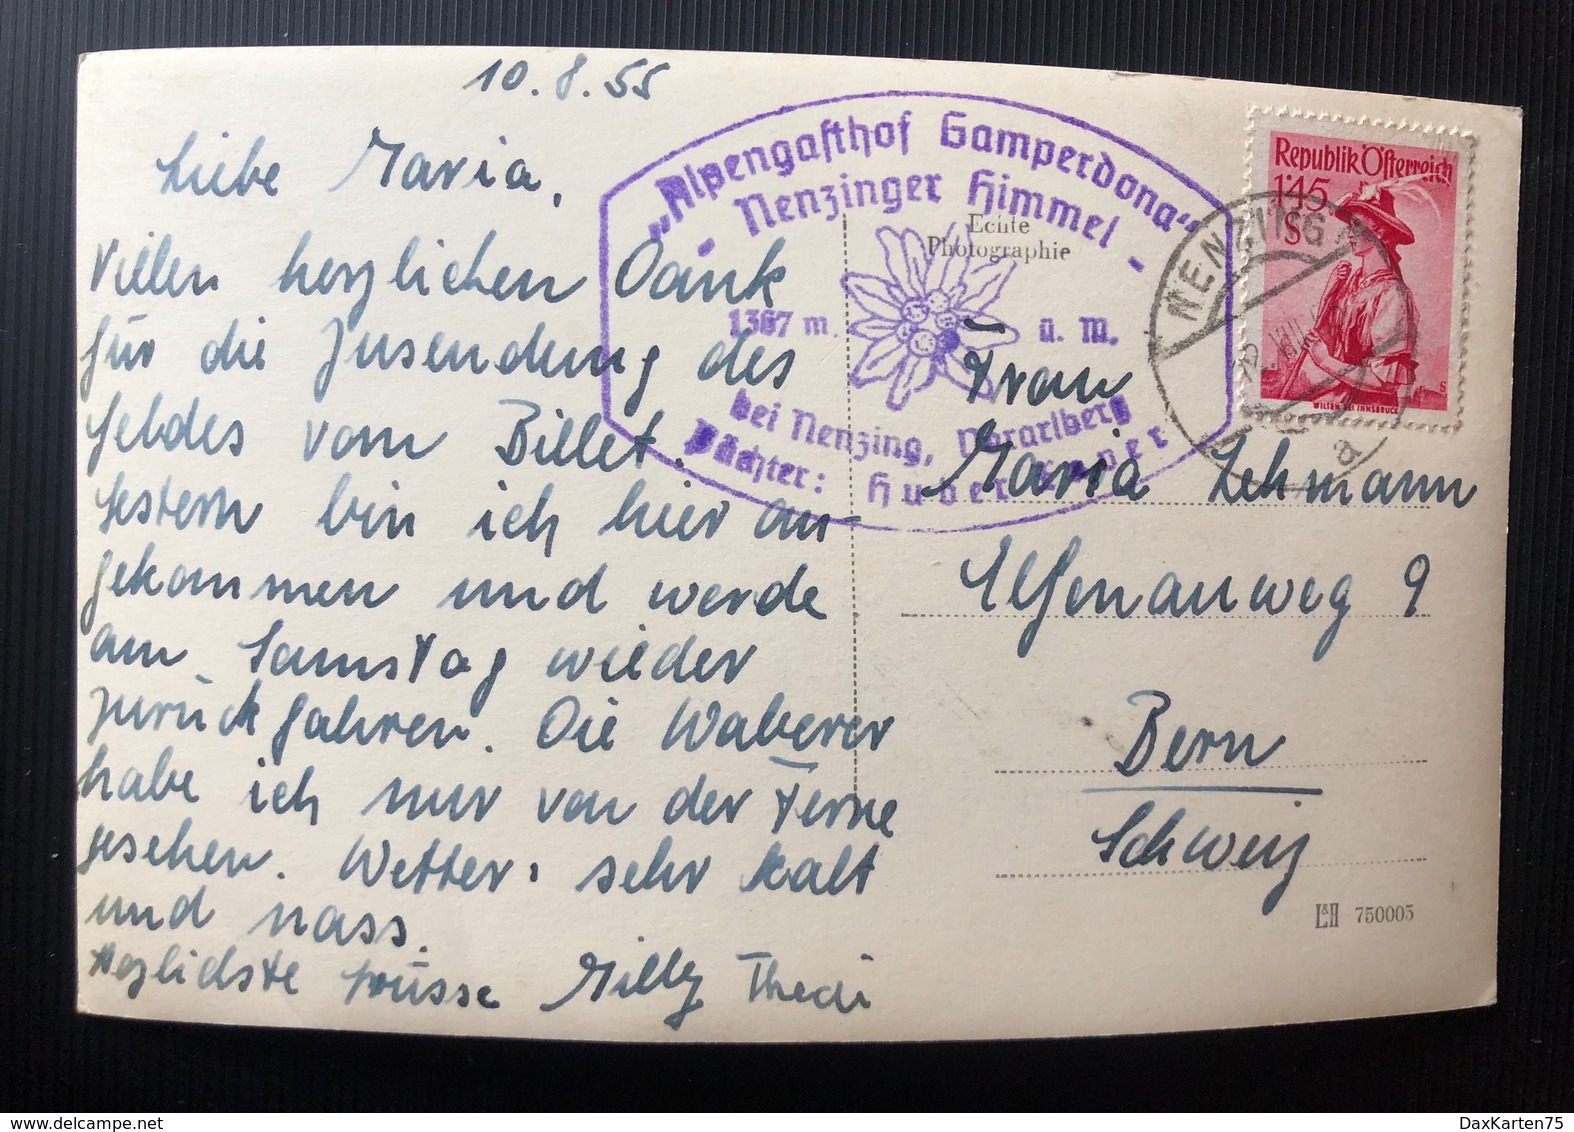 10.8.55
Liebe Maria,
Vielen herzlichen Dank
für die Zusendung des
Geldes vom Billet.
Gestern bin ich hier an-
gekommen und werde
am Samstag wieder
zurückfahren. Die Waberer
habe ich nur von der Ferne
gesehen. Wetter: sehr kalt
und nass.
Herzlichste Grüsse Milly Thedi
„Alpengasthof Gamperdona“
- Nenzinger Himmel -
1367 m. ü. M.
bei Nenzing, Vorarlberg
Pächter: Huber Xaver
Echte
Photographie
Republik Österreich
1'45
S
WILTEN BEI INNSBRUCK
NENZING
a
Frau
Maria Lehmann
Elfenauweg 9
Bern
Schweiz
L&H 750005
DaxKarten75